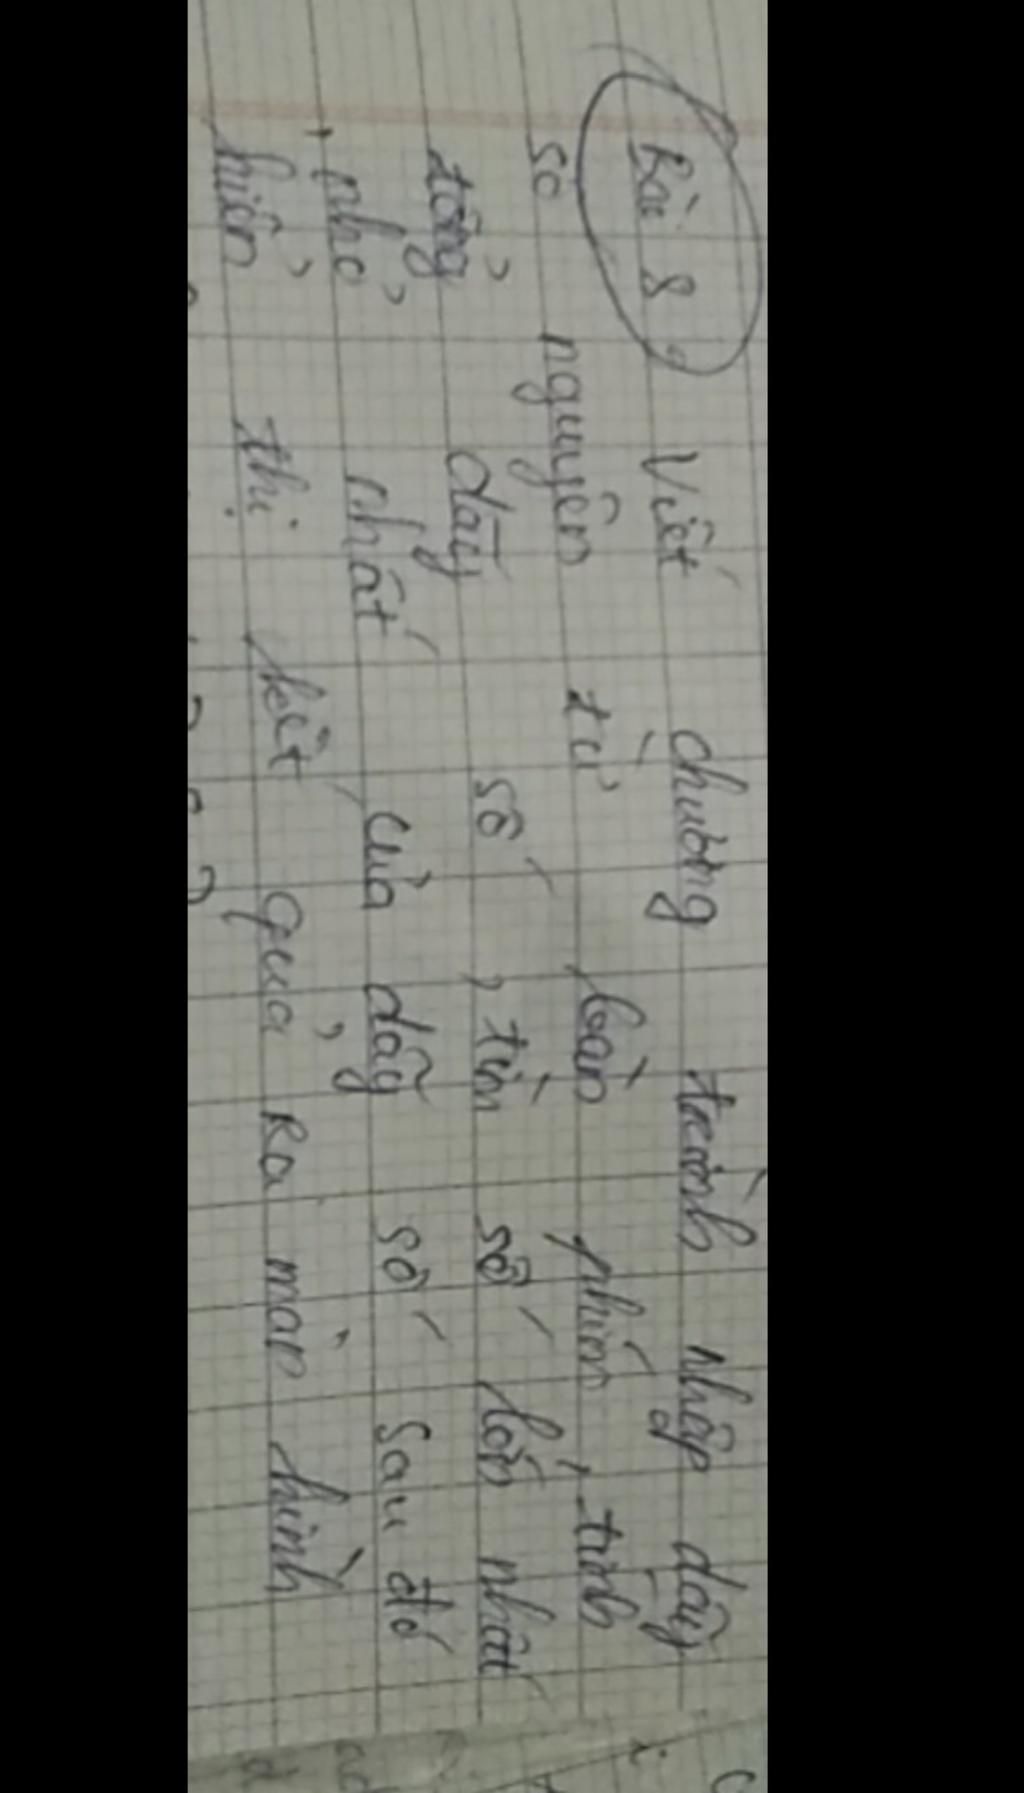 Bài 8 Viết chương trình nhập dãy
số nguyên từ bàn phím, tính
tổng dãy số, tìm số lớn nhất
, nhỏ nhất của dãy số sau đó
hiển thị kết quả Ra màn hình